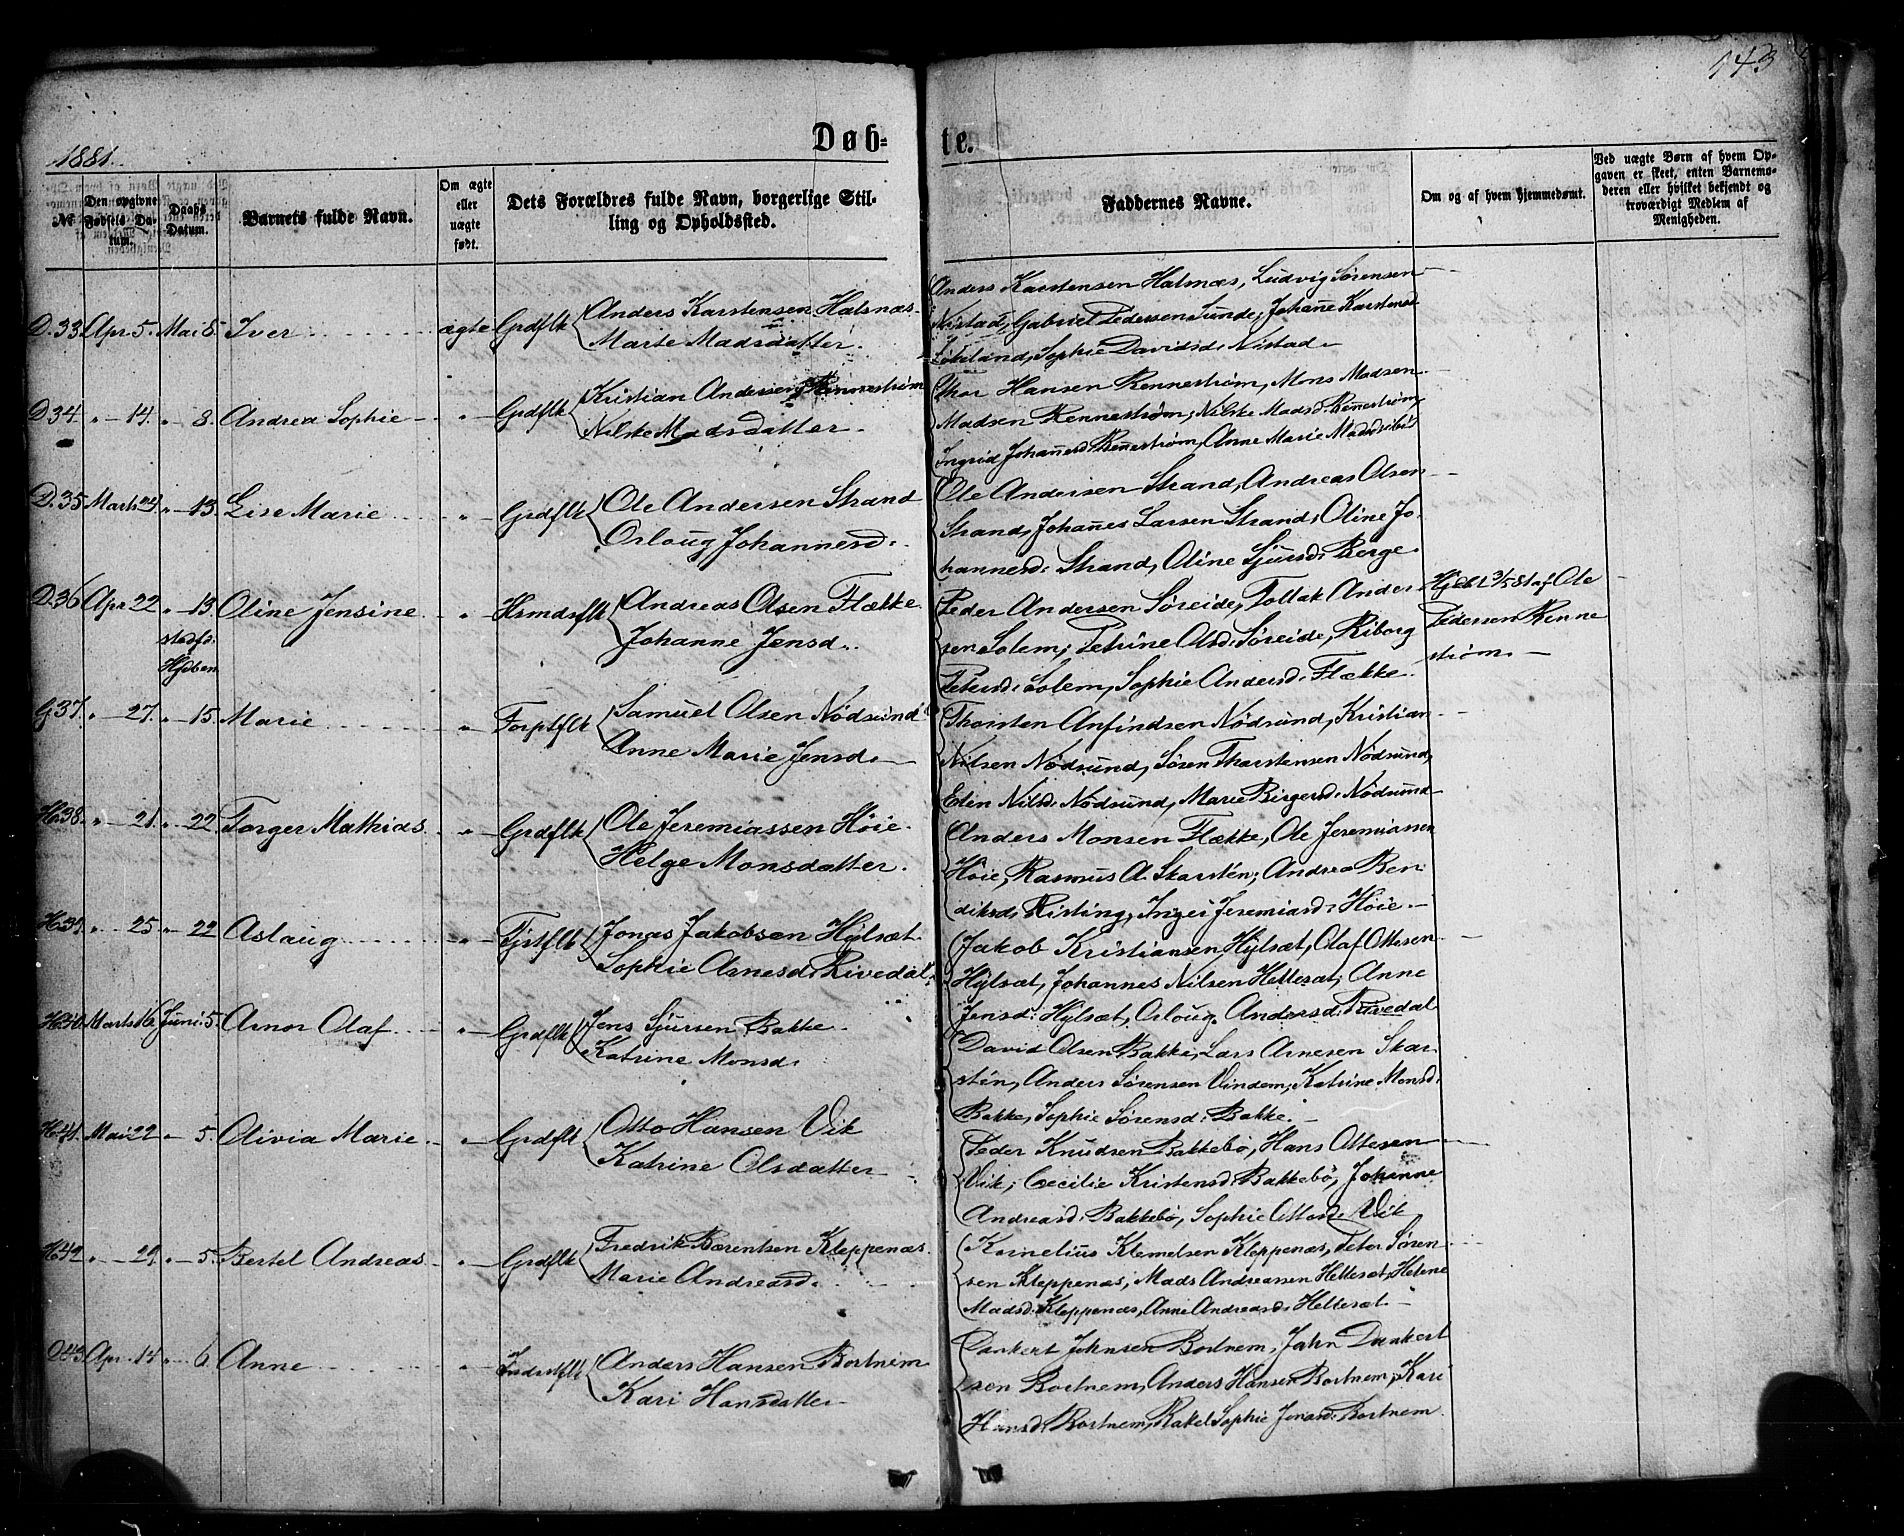 143
1881.
Døb=
te.
№
Den opgivne Fødsels-Datum.
Daabs Datum.
Barnets fulde Navn.
Om ægte eller uægte født.
Dets Forældres fulde Navn, borgerlige Stilling og Opholdssted.
Faddernes Navne.
Om og af hvem hjemmedøbt.
Ved uægte Børn af hvem Opgaven er skeet, enten Barnemoderen eller hvilket bekjendt og troværdigt Medlem af Menigheden.
D.33 Apr 5. Mai 8. Iver ægte Grdflk Anders Karstensen Halsnæs
Marte Madsdatter.
Anders Karstensen Halsnæs, Ludvig Sørensen
Nistad, Gabriel Pedersen Sunde, Johañe Karstensd
Sophie Davidsd. Nistad
D.34 " 14. " 8. Andrea Sophie " Grdflk Kristian Andersen Rennestrøm
Nilske Madsdatter.
Thor Hansen Rennestrøm, Mons Madsen
Madsen Rennestrøm, Nilske Madsd. Reñestrøm
Ingrid Johañesd. Reñestrøm, Anne Marie Madsd.
D.35 Marts 24. " 13. Lise Marie " Grdflk Ole Andersen Strand
Orloug Johannesd.
Ole Andersen Strand, Andreas Olsen
Strand, Johañes Larsen Strand, Oline Jo-
hannesd. Strand, Oline Sjursd. Berge
D.36 Apr 22 " 13. Oline Jensine " Hsmdsflk Andreas Olsen Flække
stadf. Hjdben
Johanne Jensd.
Peder Andersen Søreide, Tollak Ander
sen Solem, Petrine Olsd. Søreide, Riborg
Petersd. Solem, Sophie Andersd. Flække
Hjdbt 3/5 81 af Ole
Pedersen Renne
strøm
G.37. " 27. " 15. Marie " Forptflk Samuel Olsen Nødsund
Anne Marie Jensd.
Thorsten Anfindsen Nødsund, Kristian
Nilsen Nødsund, Søren Thorstensen Nødsund,
Elin Nilsd. Nødsund, Marie Birgersd. Nødsund
H.38. " 21. " 22. Torger Mathias " Grdflk Ole Jeremiassen Høie
Helge Monsdatter.
Anders Monsen Flække, Ole Jeremiassen
Høie, Rasmus A. Skarstén, Andrea Ben
diksd. Risting, Inger Jeremiasd. Høie
H.39. " 25. " 22 Aslaug " Tjstflk Jonas Jakobsen Hÿlsæt
Sophie Arnesd. Rivedal
Jakob Kristiansen Hÿlsæt, Olaf Ottesen
Hÿlsæt, Johannes Nilsen Hellesæt, Anne
Jensd. Hÿlsæt, Orloug Andersd. Rivedal
H.40. Marts 16 Juni 5. Arnor Olaf " Grdflk Jens Sjursen Bakke
Katrine Monsd.
David Olsen Bakke, Lars Arnesen Skar
stén, Anders Sørensen Vindem, Katrine Monsd.
Bakke, Sophie Sørensd. Bakke
H.41. Mai 22 " 5. Olivia Marie " Grdflk Otto Hansen Vik
Katrine Olsdatter
Peder Knudsen Bakkebø, Hans Ottesen
Vik, Cecilie Kristensd. Bakkebø, Johanne
Andreasd. Bakkebø, Sophie Ottosd. Vik
H.42 " 29. " 5. Bertel Andreas " Grdflk Fredrik Bærentsen Kleppenæs
Marie Andreasd.
Kornelius Klemetsen Kleppenæs, Peter Søren
sen Kleppenæs, Mads Andreassen Hellesæt, Helene
Madsd. Kleppenæs, Anne Andreasd. Hellesæt
D.43 Apr. 14 " 6. Anne " Indstflk Anders Hansen Bortnem
Kari Hansdatter
Dankert Johnsen Bortnem, John Dankert
sen Bortnem, Anders Hansen Bortnem, Kari
Hansd. Bortnem, Rakel Sophie Jensd. Bortnem